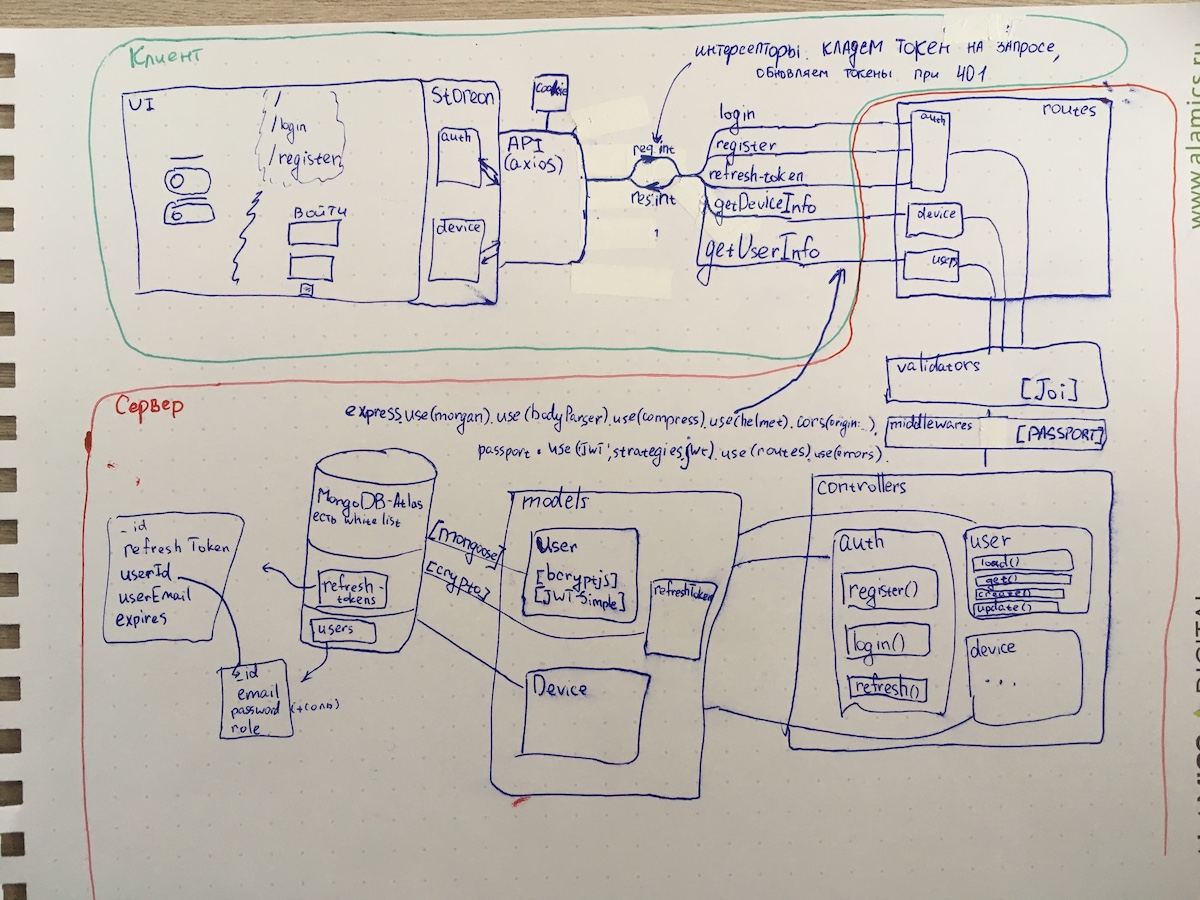 Клиент
интерсепторы. кладем токен на запросе,
обновляем токены при 401
UI
/
/login
/register
войти
Storeon
auth
device
cookie
API
(axios)
req.int
res.int
login
register
refresh-token
getDeviceInfo
getUserInfo
routes
auth
device
users
validators
[Joi]
middlewares
[PASSPORT]
Сервер
express.use(morgan).use(bodyParser).use(compress).use(helmet).cors(origin:...).
passport.use('jwt', strategies.jwt).use(routes).use(errors).
_id
refresh Token
userId
userEmail
expires
MongoDB-Atlas
есть white list
refresh-
tokens
users
_id
email
password (+соль)
role
[mongoose]
[crypto]
models
User
[bcryptjs]
[JWT-Simple]
refreshToken
Device
controllers
auth
register()
login()
refresh()
user
load()
get()
create()
update()
device
...
www.alamics.ru